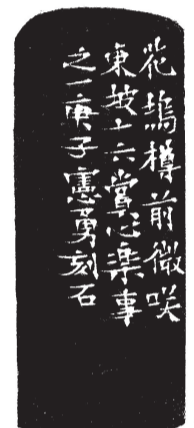 花塢樽前微咲
東坡十六賞心楽事
之一庚子憲勇刻石